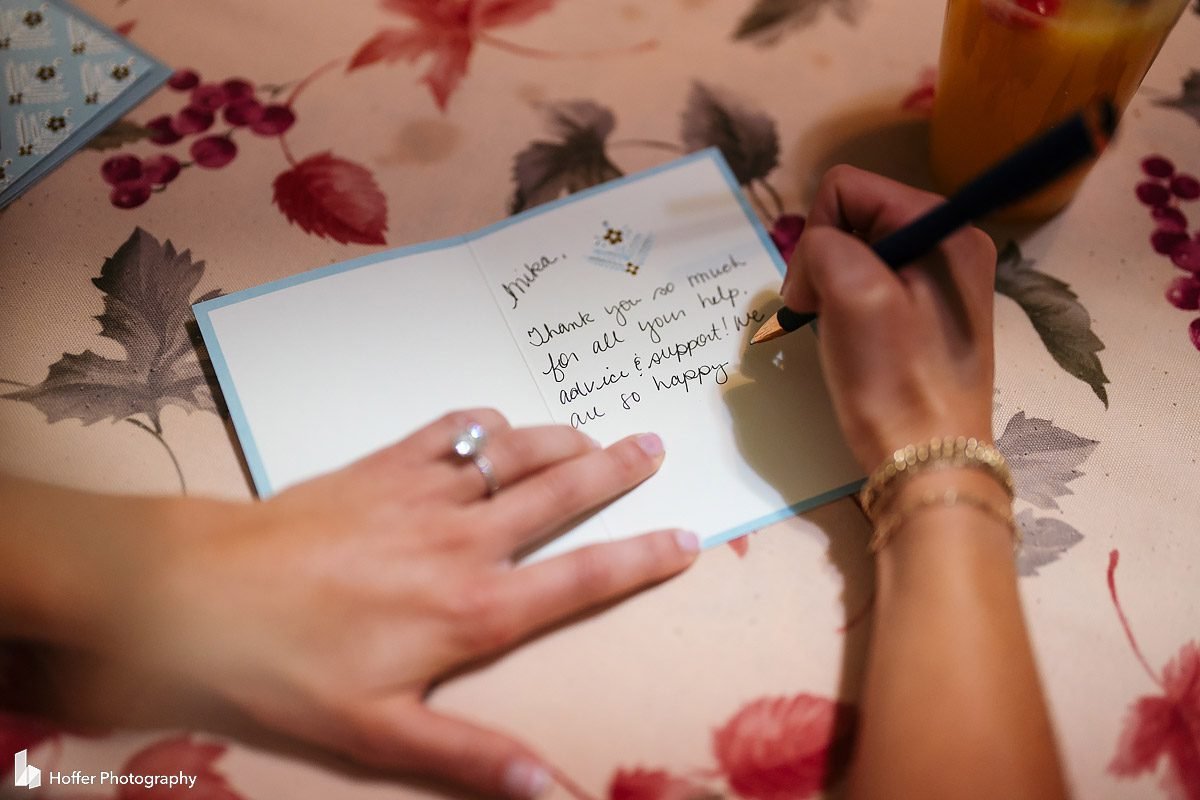 Mika,
Thank you so much
for all your help,
advice & support! We
are so happy
Hoffer Photography